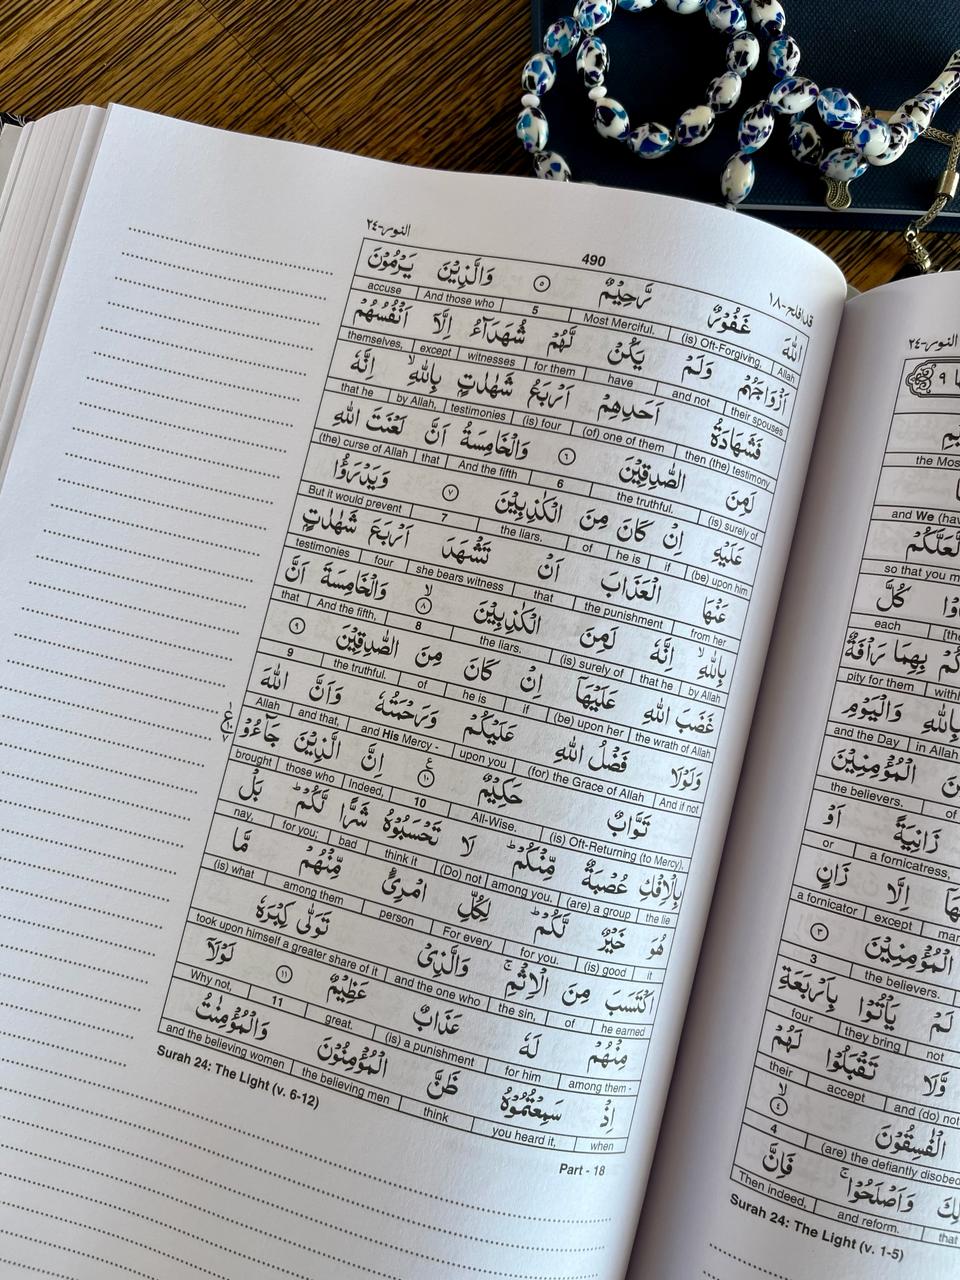 النور-٢٤
490
قد افلح-١٨
اللّٰهَ غَفُوْرٌ رَّحِيْمٌ ٥ وَالَّذِيْنَ يَرْمُوْنَ
Allah (is) Oft-Forgiving, Most Merciful. 5 And those who accuse
اَزْوَاجَهُمْ وَلَمْ يَكُنْ لَّهُمْ شُهَدَآءُ اِلَّآ اَنْفُسُهُمْ
their spouses and not have for them witnesses except themselves,
فَشَهَادَةُ اَحَدِهِمْ اَرْبَعُ شَهٰدٰتٍۭ بِاللّٰهِ ۙ اِنَّهٗ
then (the) testimony (of) one of them (is) four testimonies by Allah, that he
لَمِنَ الصّٰدِقِيْنَ ٦ وَالْخَامِسَةُ اَنَّ لَعْنَتَ اللّٰهِ
(is) surely of the truthful. 6 And the fifth that (the) curse of Allah
عَلَيْهِ اِنْ كَانَ مِنَ الْكٰذِبِيْنَ ٧ وَيَدْرَؤُا
(be) upon him if he is of the liars. 7 But it would prevent
عَنْهَا الْعَذَابَ اَنْ تَشْهَدَ اَرْبَعَ شَهٰدٰتٍۭ
from her the punishment that she bears witness four testimonies
بِاللّٰهِ ۙ اِنَّهٗ لَمِنَ الْكٰذِبِيْنَ ۙ ٨ وَالْخَامِسَةَ اَنَّ
by Allah that he (is) surely of the liars. 8 And the fifth, that
غَضَبَ اللّٰهِ عَلَيْهَآ اِنْ كَانَ مِنَ الصّٰدِقِيْنَ ٩
the wrath of Allah (be) upon her if he is of the truthful. 9
وَلَوْلَا فَضْلُ اللّٰهِ عَلَيْكُمْ وَرَحْمَتُهٗ وَاَنَّ اللّٰهَ
And if not (for) the Grace of Allah upon you and His Mercy - and that, Allah
تَوَّابٌ حَكِيْمٌ ١٠ اِنَّ الَّذِيْنَ جَآءُوْ
(is) Oft-Returning (to Mercy), All-Wise. 10 Indeed, those who brought
بِالْاِفْكِ عُصْبَةٌ مِّنْكُمْ ؕ لَا تَحْسَبُوْهُ شَرًّا لَّكُمْ ؕ بَلْ
the lie (are) a group among you. (Do) not think it bad for you; nay,
هُوَ خَيْرٌ لَّكُمْ ؕ لِكُلِّ امْرِئٍ مِّنْهُمْ مَّا
it (is) good for you. For every person among them (is) what
اكْتَسَبَ مِنَ الْاِثْمِ ۚ وَالَّذِيْ تَوَلّٰى كِبْرَهٗ
he earned of the sin, and the one who took upon himself a greater share of it
مِنْهُمْ لَهٗ عَذَابٌ عَظِيْمٌ ١١ لَوْلَآ
among them - for him (is) a punishment great. 11 Why not,
اِذْ سَمِعْتُمُوْهُ ظَنَّ الْمُؤْمِنُوْنَ وَالْمُؤْمِنٰتُ
when you heard it, think the believing men and the believing women
Surah 24: The Light (v. 6-12)
Part - 18
النور-٢٤
the Mos
and We (hav
لَّعَلَّكُمْ
so that you m
كُلَّ
each
بِهِمَا رَاْفَةٌ
pity for them with
بِاللّٰهِ وَالْيَوْمِ
and the Day in Allah
الْمُؤْمِنِيْنَ
the believers. of
زَانِيَةً اَوْ
or a fornicatress,
اِلَّا زَانٍ
a fornicator except mar
الْمُؤْمِنِيْنَ ٣
3 the believers.
لَمْ يَاْتُوْا بِاَرْبَعَةِ
four they bring not
وَّلَا تَقْبَلُوْا لَهُمْ
their accept and (do) not
الْفٰسِقُوْنَ ۙ ٤
4 (are) the defiantly disobed
وَاَصْلَحُوْا ۚ فَاِنَّ
Then indeed, and reform. that
Surah 24: The Light (v. 1-5)